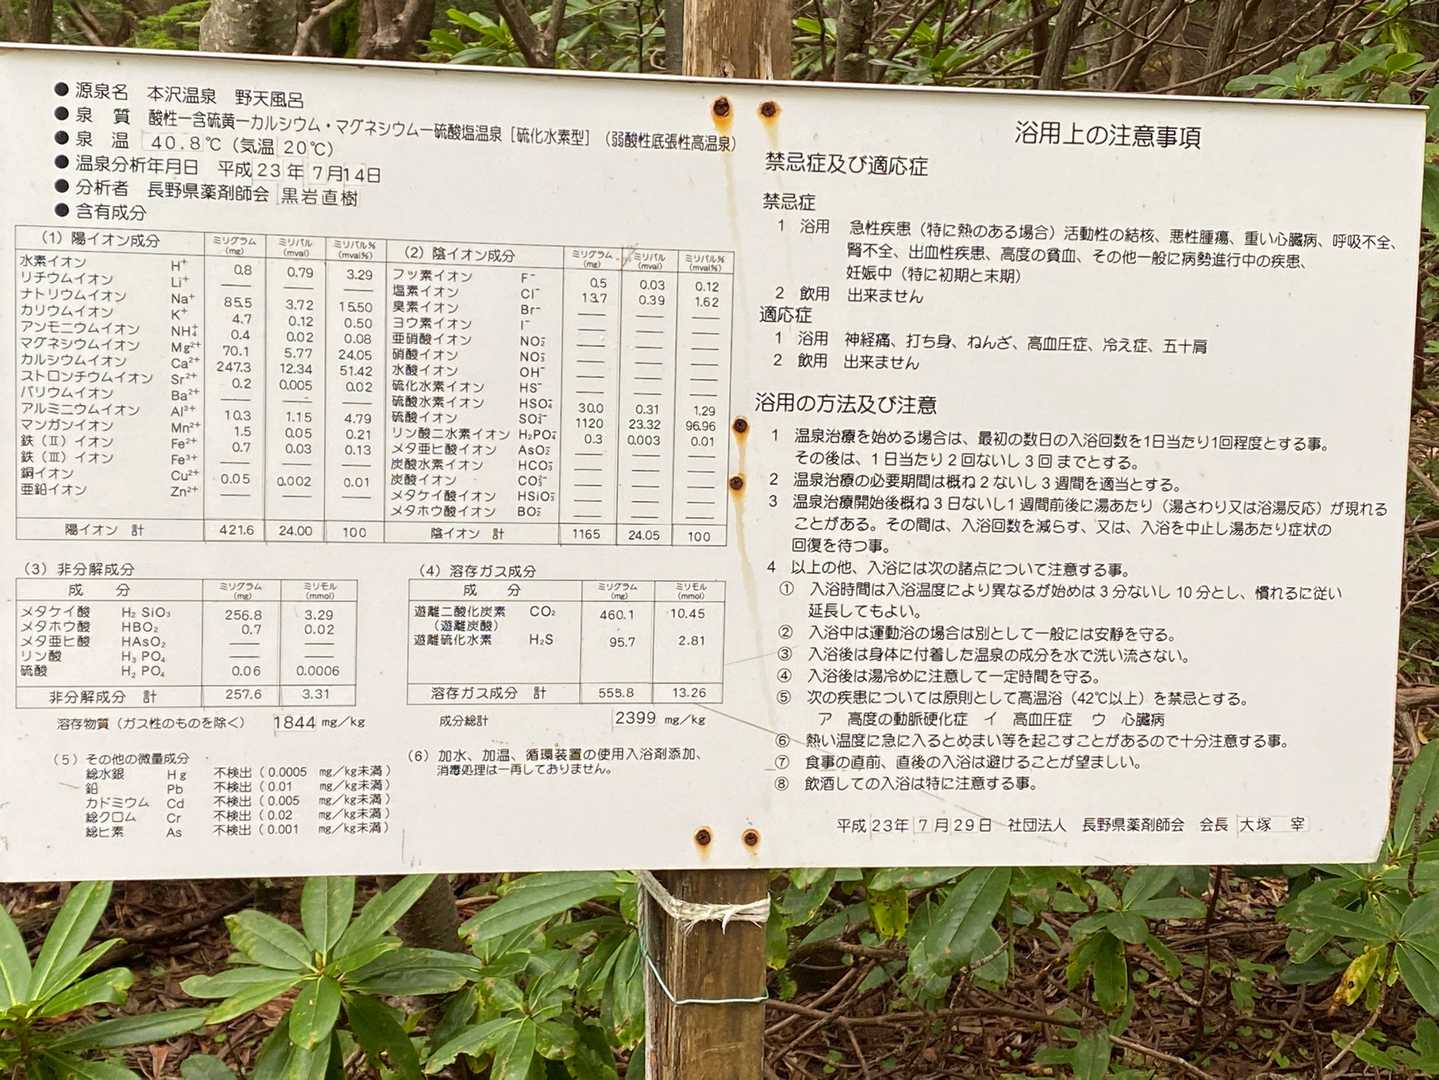 ● 源泉名 本沢温泉 野天風呂
● 泉 質 酸性ー含硫黄ーカルシウム・マグネシウムー硫酸塩温泉［硫化水素型］（弱酸性底張性高温泉）
● 泉 温 40.8℃（気温 20℃）
● 温泉分析年月日 平成 23 年 7 月 14 日
● 分析者 長野県薬剤師会 黒岩直樹
● 含有成分
（1）陽イオン成分 ミリグラム(mg) ミリバル(mval) ミリバル%(mval%)
水素イオン H⁺ 0.8 0.79 3.29
リチウムイオン Li⁺ — — —
ナトリウムイオン Na⁺ 85.5 3.72 15.50
カリウムイオン K⁺ 4.7 0.12 0.50
アンモニウムイオン NH₄⁺ 0.4 0.02 0.08
マグネシウムイオン Mg²⁺ 70.1 5.77 24.05
カルシウムイオン Ca²⁺ 247.3 12.34 51.42
ストロンチウムイオン Sr²⁺ 0.2 0.005 0.02
バリウムイオン Ba²⁺ — — —
アルミニウムイオン Al³⁺ 10.3 1.15 4.79
マンガンイオン Mn²⁺ 1.5 0.05 0.21
鉄（Ⅱ）イオン Fe²⁺ 0.7 0.03 0.13
鉄（Ⅲ）イオン Fe³⁺ — — —
銅イオン Cu²⁺ 0.05 0.002 0.01
亜鉛イオン Zn²⁺ — — —
陽イオン 計 421.6 24.00 100
（2）陰イオン成分 ミリグラム(mg) ミリバル(mval) ミリバル%(mval%)
フッ素イオン F⁻ 0.5 0.03 0.12
塩素イオン Cl⁻ 13.7 0.39 1.62
臭素イオン Br⁻ — — —
ヨウ素イオン I⁻ — — —
亜硝酸イオン NO₂⁻ — — —
硝酸イオン NO₃⁻ — — —
水酸イオン OH⁻ — — —
硫化水素イオン HS⁻ — — —
硫酸水素イオン HSO₄⁻ 30.0 0.31 1.29
硫酸イオン SO₄²⁻ 1120 23.32 96.96
リン酸二水素イオン H₂PO₄⁻ 0.3 0.003 0.01
メタ亜ヒ酸イオン AsO₂⁻ — — —
炭酸水素イオン HCO₃⁻ — — —
炭酸イオン CO₃²⁻ — — —
メタケイ酸イオン HSiO₃⁻ — — —
メタホウ酸イオン BO₂⁻ — — —
陰イオン 計 1165 24.05 100
（3）非分解成分
成 分 ミリグラム(mg) ミリモル(mmol)
メタケイ酸 H₂ SiO₃ 256.8 3.29
メタホウ酸 HBO₂ 0.7 0.02
メタ亜ヒ酸 HAsO₂ — —
リン酸 H₃ PO₄ — —
硫酸 H₂ PO₄ 0.06 0.0006
非分解成分 計 257.6 3.31
（4）溶存ガス成分
成 分 ミリグラム(mg) ミリモル(mmol)
遊離二酸化炭素 CO₂ 460.1 10.45
（遊離炭酸）
遊離硫化水素 H₂S 95.7 2.81
溶存ガス成分 計 555.8 13.26
溶存物質（ガス性のものを除く） 1844 mg／kg
成分総計 2399 mg／kg
（5）その他の微量成分
総水銀 Hg 不検出（0.0005 mg／kg未満）
鉛 Pb 不検出（0.01 mg／kg未満）
カドミウム Cd 不検出（0.005 mg／kg未満）
総クロム Cr 不検出（0.02 mg／kg未満）
総ヒ素 As 不検出（0.001 mg／kg未満）
（6）加水、加温、循環装置の使用入浴剤添加、
消毒処理は一再しておりません。
浴用上の注意事項
禁忌症及び適応症
禁忌症
1 浴用 急性疾患（特に熱のある場合）活動性の結核、悪性腫瘍、重い心臓病、呼吸不全、
腎不全、出血性疾患、高度の貧血、その他一般に病勢進行中の疾患、
妊娠中（特に初期と末期）
2 飲用 出来ません
適応症
1 浴用 神経痛、打ち身、ねんざ、高血圧症、冷え症、五十肩
2 飲用 出来ません
浴用の方法及び注意
1 温泉治療を始める場合は、最初の数日の入浴回数を1日当たり1回程度とする事。
その後は、1日当たり2回ないし3回 までとする。
2 温泉治療の必要期間は概ね2ないし3週間を適当とする。
3 温泉治療開始後概ね3日ないし1週間前後に湯あたり（湯さわり又は浴湯反応）が現れる
ことがある。その間は、入浴回数を減らす、又は、入浴を中止し湯あたり症状の
回復を待つ事。
4 以上の他、入浴には次の諸点について注意する事。
① 入浴時間は入浴温度により異なるが始めは3分ないし10分とし、慣れるに従い
延長してもよい。
② 入浴中は運動浴の場合は別として一般には安静を守る。
③ 入浴後は身体に付着した温泉の成分を水で洗い流さない。
④ 入浴後は湯冷めに注意して一定時間を守る。
⑤ 次の疾患については原則として高温浴（42℃以上）を禁忌とする。
ア 高度の動脈硬化症 イ 高血圧症 ウ 心臓病
⑥ 熱い温度に急に入るとめまい等を起こすことがあるので十分注意する事。
⑦ 食事の直前、直後の入浴は避けることが望ましい。
⑧ 飲酒しての入浴は特に注意する事。
平成 23年 7月 29日 社団法人 長野県薬剤師会 会長 大塚 宰